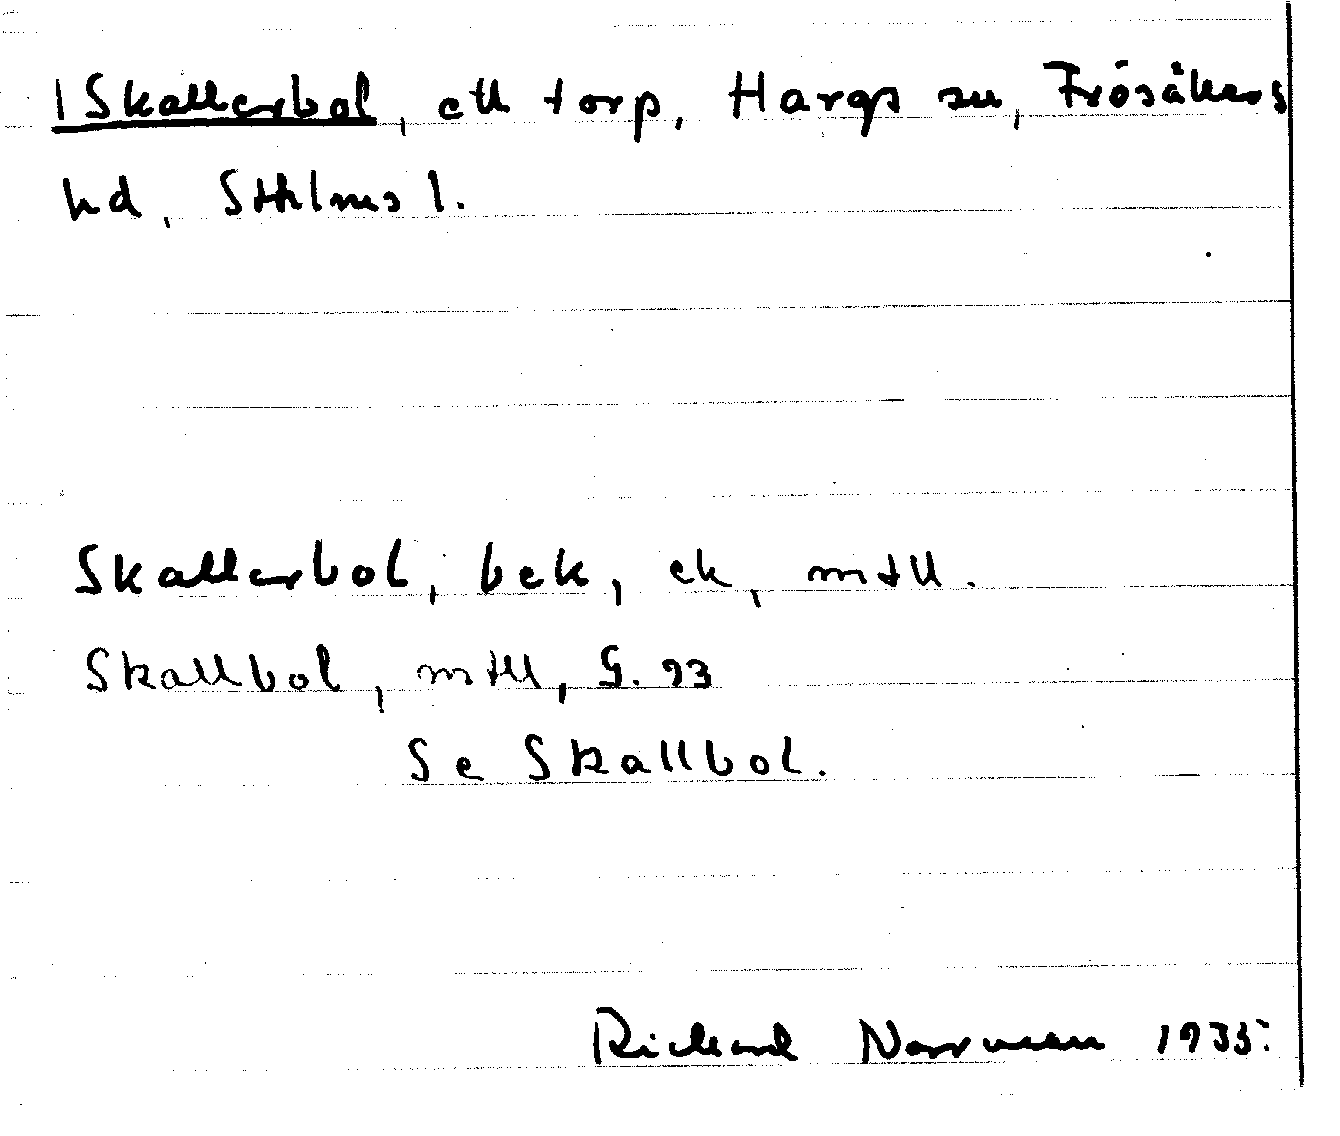 Skallerbol, ett torp, Hargs sn, Frösåkers
hd, Sthlms l.
Skallerbol, bek, ek, mtll.
Skallbol, mtll, G. 93
Se Skallbol.
Richard Norrman 1935.